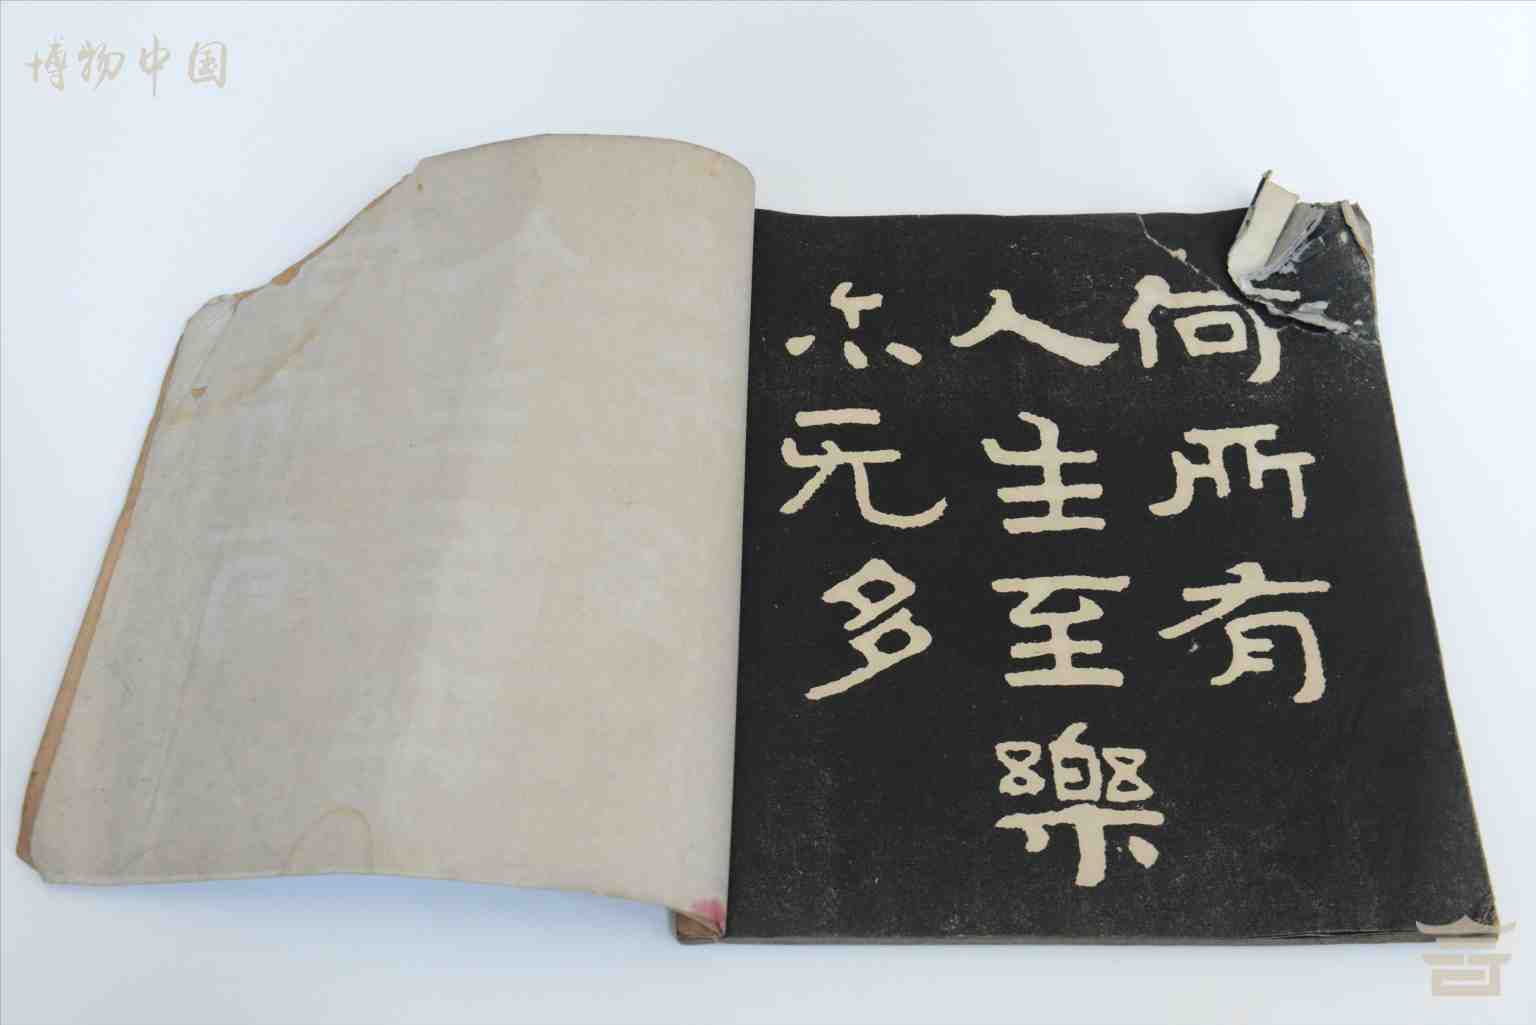 博物中国
何所有
人生至樂
尒无多